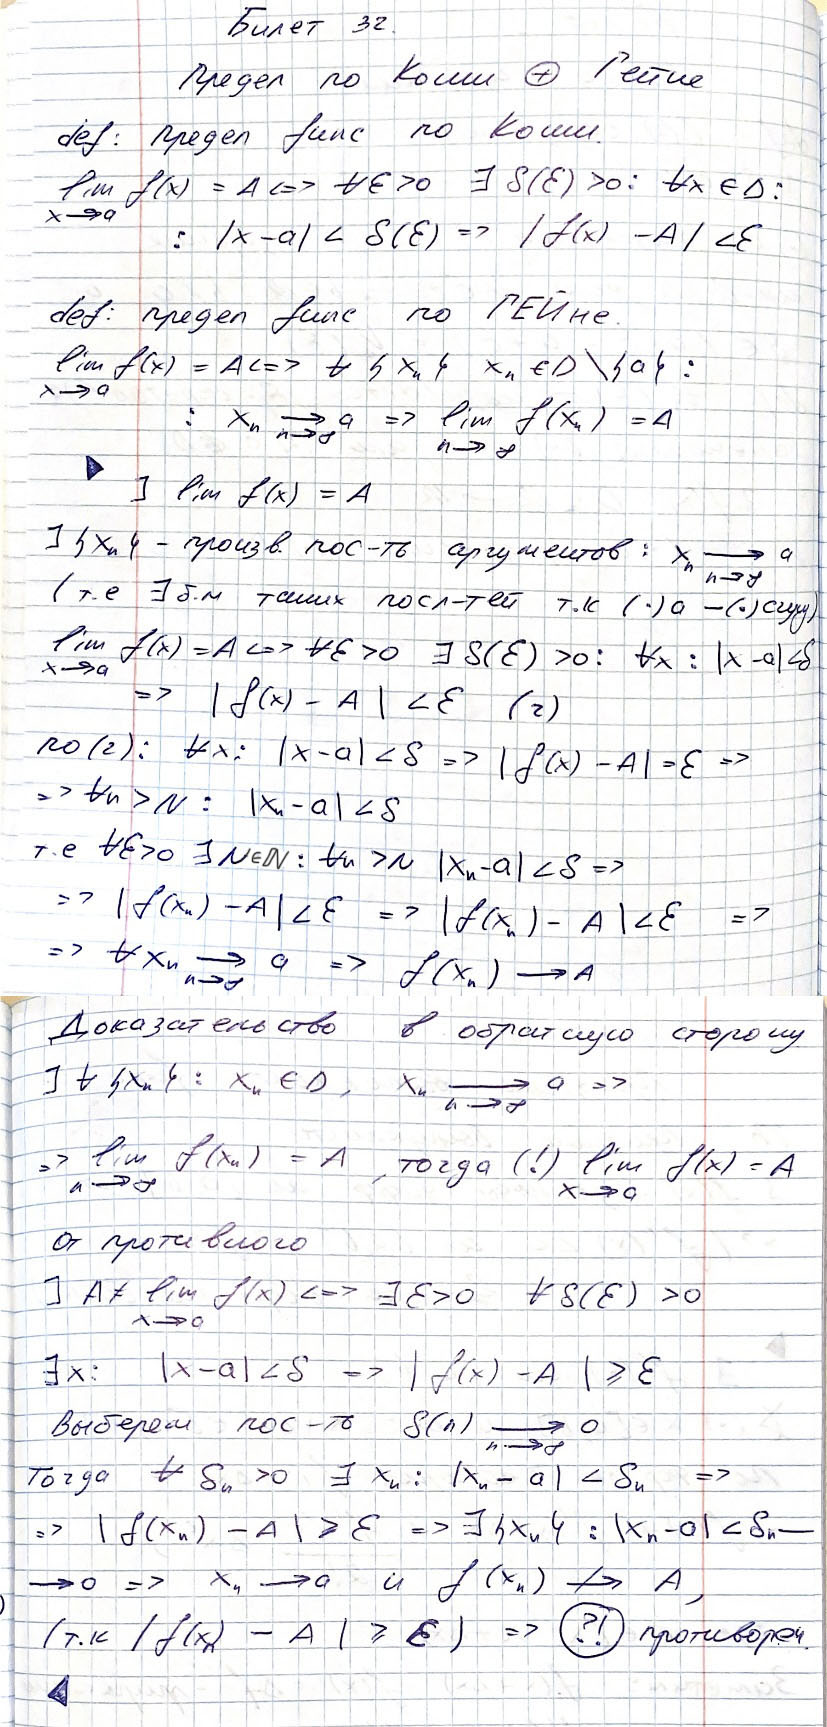 Билет 32.
Предел по Коши ⊕ Гейне
def: предел func по Коши.
lim f(x) = A <=> ∀Ɛ>0 ∃ δ(Ɛ) >0: ∀x ∈D:
x→a
: |x-a| < δ(Ɛ) => |f(x) -A| <Ɛ
def: предел func по ГЕЙне.
lim f(x) = A <=> ∀ {xₙ} xₙ ∈D \{a} :
x→a
: xₙ → a => lim f(xₙ) = A
n→∞ n→∞
▶
] lim f(x) = A
] {xₙ} - произв. пос-ть аргументов: xₙ → a
n→∞
(т.е ∃ б.м таких посл-тей т.к (·)a -(·)сгущ)
lim f(x) = A <=> ∀Ɛ>0 ∃ δ(Ɛ) >0: ∀x : |x-a|<δ
x→a
=> |f(x) - A| <Ɛ (2)
по(2): ∀x: |x-a| <δ => |f(x) -A| =Ɛ =>
=> ∀n >N : |xₙ-a| <δ
т.е ∀Ɛ>0 ∃N∈N: ∀n >N |xₙ-a| <δ =>
=> |f(xₙ) -A| <Ɛ => |f(xₙ) - A| <Ɛ =>
=> ∀ xₙ → a => f(xₙ) → A
n→∞
Доказательство в обратную сторону
] ∀ {xₙ} : xₙ ∈D, xₙ → a =>
n→∞
=> lim f(xₙ) = A , тогда (!) lim f(x) = A
n→∞ x→a
От противного
] A≠ lim f(x) <=> ∃Ɛ>0 ∀ δ(Ɛ) >0
x→a
∃x: |x-a| <δ => |f(x) -A | ⩾ Ɛ
Выберем пос-ть δ(n) → 0
n→∞
Тогда ∀ δₙ >0 ∃ xₙ: |xₙ-a| < δₙ =>
=> |f(xₙ) -A| ⩾ Ɛ => ∃{xₙ} : |xₙ-a| <δₙ—
→0 => xₙ →a и f(xₙ) ↛ A,
(т.к |f(xₙ) - A | ⩾ Ɛ) => ?! противореч.
◀